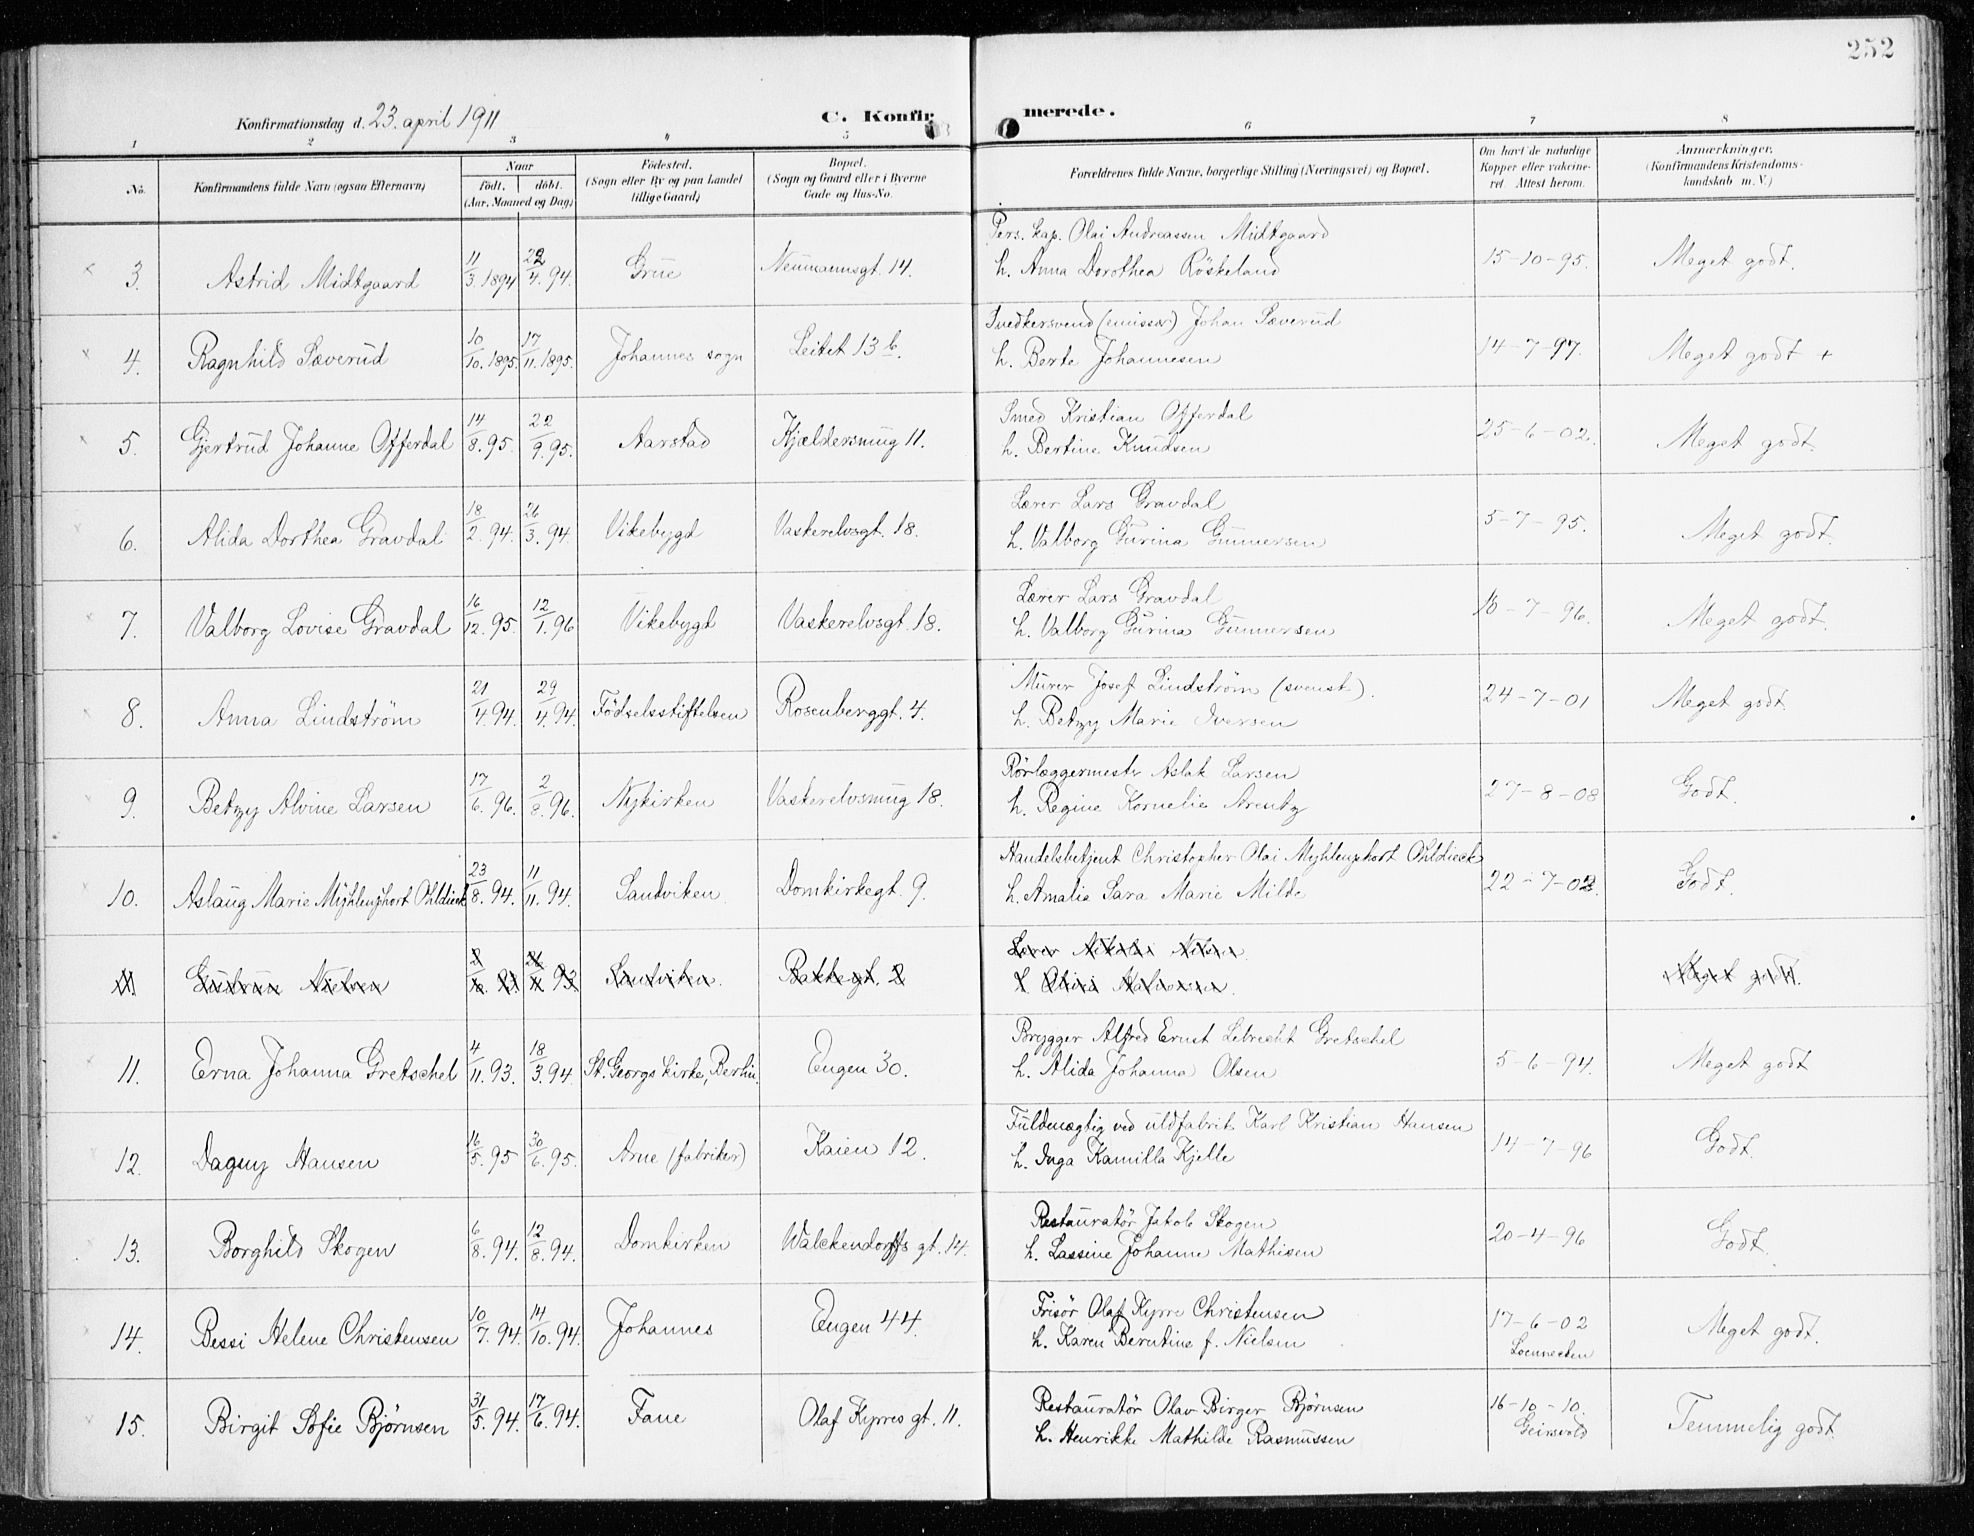 252
Konfirmationsdag d. 23. april 1911
C. Konfirmerede.
1 2 3 " 5 6 7 8
No.
Konfirmandens fulde Navn (ogsaa Efternavn)
Naar
født. døbt.
(Aar, Maaned og Dag)
Fødested.
(Sogn eller By og paa Landet
tillige Gaard)
Bopæl.
(Sogn og Gaard eller i Byerne
Gade og Hus-No.
Forældrenes fulde Navne, borgerlige Stilling (Næringsvei) og Bopæl.
Om havt de naturlige
Kopper eller vakcine-
ret. Attest herom.
Anmærkninger.
(Konfirmandens Kristendoms-
kundskab m. V.)
Pers. kap. Olai Andreassen Midtgaard
3. Astrid Midtgaard 11/3. 1894 22/4. 94. Grue Neumannsgt. 14. h. Anna Dorothea Röskeland 15-10-95. Meget godt.
Snedkersvend (emissær) Johan Sæverud
4. Ragnhild Sæverud 10/10. 1895. 17/11. 1895. Johannes sogn Leitet 13 b. h. Berte Johannesen 14-7-97. Meget godt +
Smed Kristian Offerdal
5. Gjertrud Johanne Offerdal 14/8. 95. 22/9. 95. Aarstad Kjeldersmug 11. h. Bertine Knudsen 25-6-02. Meget godt.
Lærer Lars Gravdal
6. Alida Dorthea Gravdal 18/2. 94. 26/3. 94. Vikebygd Vaskerelvsgt. 18. h. Valborg Gurina Gunnersen 5-7-95. Meget godt.
Lærer Lars Gravdal
7. Valborg Lovise Gravdal 16/12. 95. 12/1. 96 Vikebygd Vaskerelvsgt. 18. h. Valborg Gurina Gunnersen 10-7-96. Meget godt.
Murer Josef Lindström (svensk).
8. Anna Lindström 21/4. 94. 29/4. 94 Födselsstiftelsen Rosenberggt. 4. h. Betzy Marie Iversen 24-7-01 Meget godt.
Rörlæggermester Aslak Larsen
9. Betzy Alvine Larsen 17/6. 96. 2/8. 96. Nykirken Vaskerelvsmug 18. h. Regine Kornelie Arentz 27-8-08 Godt.
Handelsbetjent Christopher Olai Myhlenphort Ohldieck
10. Aslaug Marie Myhlenphort Ohldieck 23/8. 94. 11/11. 94. Sandviken. Domkirkegt. 9. h. Amalia Sara Marie Milde 22-7-02. Godt.
Lærer Nikolai Nilsen
11. Gudrun Nielsen Sandviken. Bakkegt. 2 Meget godt.
Brygger Alfred Ernst Lebrecht Gretschel
11. Erna Johanna Gretschel 4/11. 93. 18/3. 94. St. Georgs kirke, Berlin. Engen 30. h. Alida Johanna Olsen 5-6-94. Meget godt
Fuldmægtig ved uldfabrik Karl Kristian Hansen
12. Dagny Hansen 16/5. 95 30/6. 95. Arne (fabriker) Kaien 12. h. Inga Kamilla Kjelle 14-7-96 Godt.
Restauratør Jakob Skogen
13. Borghild Skogen 6/8. 94. 12/8. 94. Domkirken Walckendorffs gt. 14. h. Lassine Johanne Mathisen 20-4-96 Godt.
Frisör Olaf Kyrre Christensen
14. Bessi Helene Christensen 10/7. 94. 14/10. 94. Johannes Engen 44. h. Karen Berntine f. Nielsen 17-6-02 Meget godt.
Restauratør Olav Birger Bjørnsen
15. Birgit Sofie Bjørnsen 31/5. 94. 17/6. 94. Fane Olaf Kyrres gt. 11. h. Henrikke Mathilde Rasmussen 16-10-10. Temmelig godt.